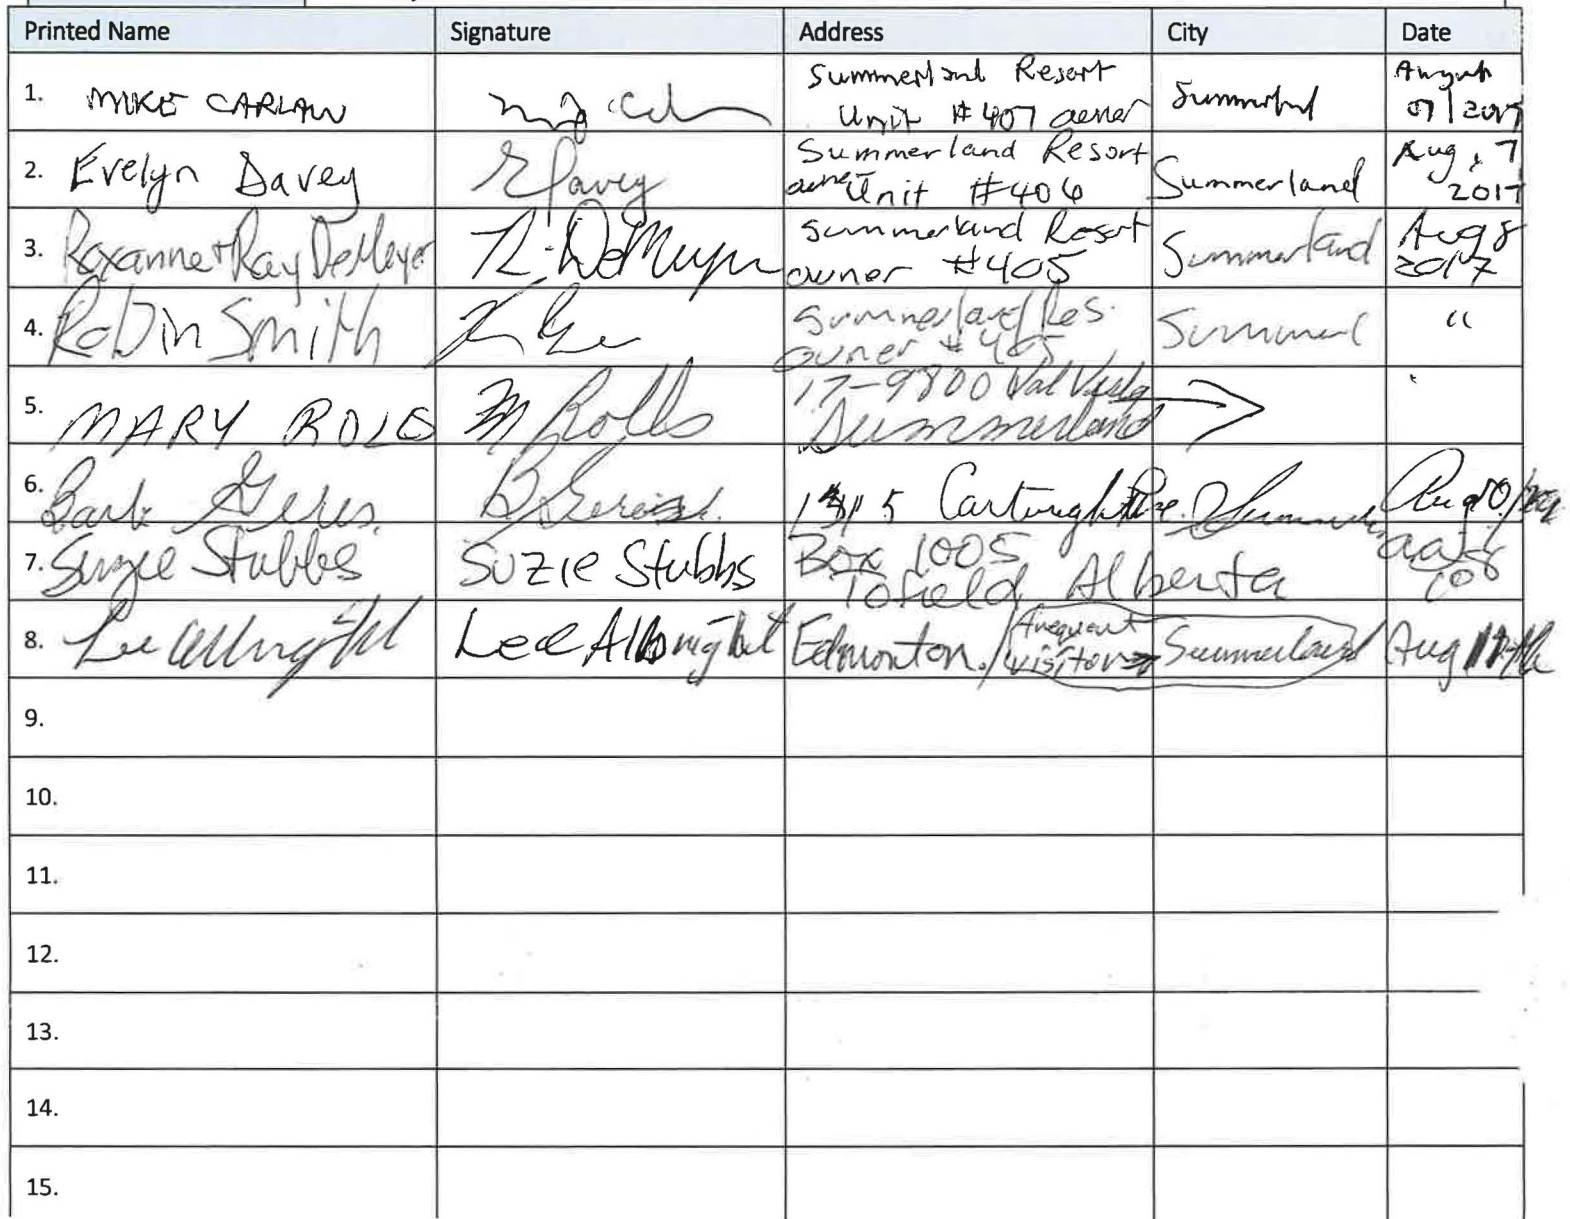 Printed Name Signature Address City Date
1. MIKE CARLAW Summerland Resort Unit #407 owner Summerland August 07/2017
2. Evelyn Davey EDavey Summerland Resort owner Unit #406 Summerland Aug, 7 2017
3. Roxanne + Ray DeMeyer R. DeMeyer Summerland Resort owner #405 Summerland Aug 8 2017
4. Robin Smith Summerland Res. owner #405 Summerl "
5. MARY ROLS M Rolls 17-9800 Val Vista Summerland
6. Barb 
7. Suzie Stubbs Suzie Stubbs Box 1005 Tofield, Alberta
8. Lee Albright Lee Albright Edmonton / frequent visitor Summerland Aug 11th
9.
10.
11.
12.
13.
14.
15.